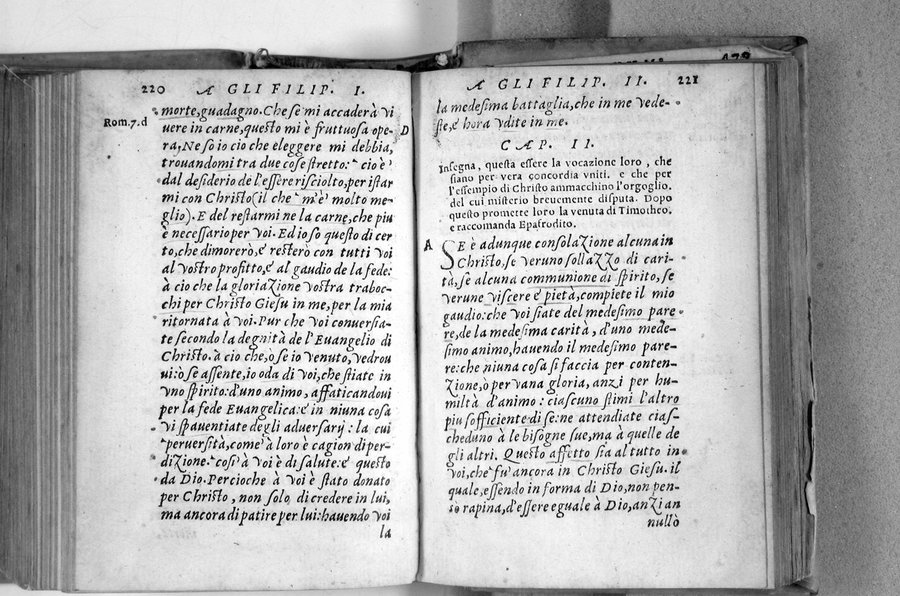 220 A GLI FILIP. I.
Rom.7.d
morte, guadagno. Che se mi accaderà vi
uere in carne, questo mi è fruttuosa ope-
D
ra, Ne so io cio che eleggere mi debbia,
trouandomi tra due cose stretto: cio è
dal desiderio de l'essere risciolto, per istar
mi con Christo (il che m'è molto me-
glio). E del restarmi ne la carne, che piu
è necessario per voi. Ed io so questo di cer
to, che dimorerò, e resterò con tutti voi
al vostro profitto, e al gaudio de la fede:
à cio che la gloriazione vostra traboc-
chi per Christo Giesu in me, per la mia
ritornata à voi. Pur che voi conuersia-
te secondo la degnità de l'Euangelio di
Christo. à cio che, o se io venuto, vedrou
ui: ò se assente, io oda di voi, che stiate in
vno spirito: d'uno animo, affaticandoui
per la fede Euangelica: e in niuna cosa
vi spauentiate degli aduersarij: la cui
peruersità, come à loro è cagion di per-
dizione. cosi à voi è di salute: e questo
da Dio. Percioche à voi è stato donato
per Christo, non solo di credere in lui,
ma ancora di patire per lui: hauendo voi
la
A GLI FILIP. II. 221
la medesima battaglia, che in me vede-
ste, e hora vdite in me.
CAP. II.
Insegna, questa essere la vocazione loro, che
siano per vera concordia vniti. e che per
l'essempio di Christo ammacchino l'orgoglio,
del cui misterio breuemente disputa. Dopo
questo promette loro la venuta di Timotheo,
e raccomanda Epafrodito.
A
SE è adunque consolazione alcuna in
Christo, se veruno sollazzo di cari-
tà, se alcuna communione di spirito, se
verune viscere e pietà, compiete il mio
gaudio: che voi siate del medesimo pare
re, de la medesima carità, d'uno mede-
simo animo, hauendo il medesimo pare-
re: che niuna cosa si faccia per conten-
zione, ò per vana gloria, anzi per hu-
miltà d'animo: ciascuno stimi l'altro
piu sofficiente di se: ne attendiate cias-
cheduno à le bisogne sue, ma à quelle de
gli altri. Questo affetto sia al tutto in
voi, che fu ancora in Christo Giesu. il
quale, essendo in forma di Dio, non pen-
sò rapina, d'essere eguale à Dio, anzi an
nullò